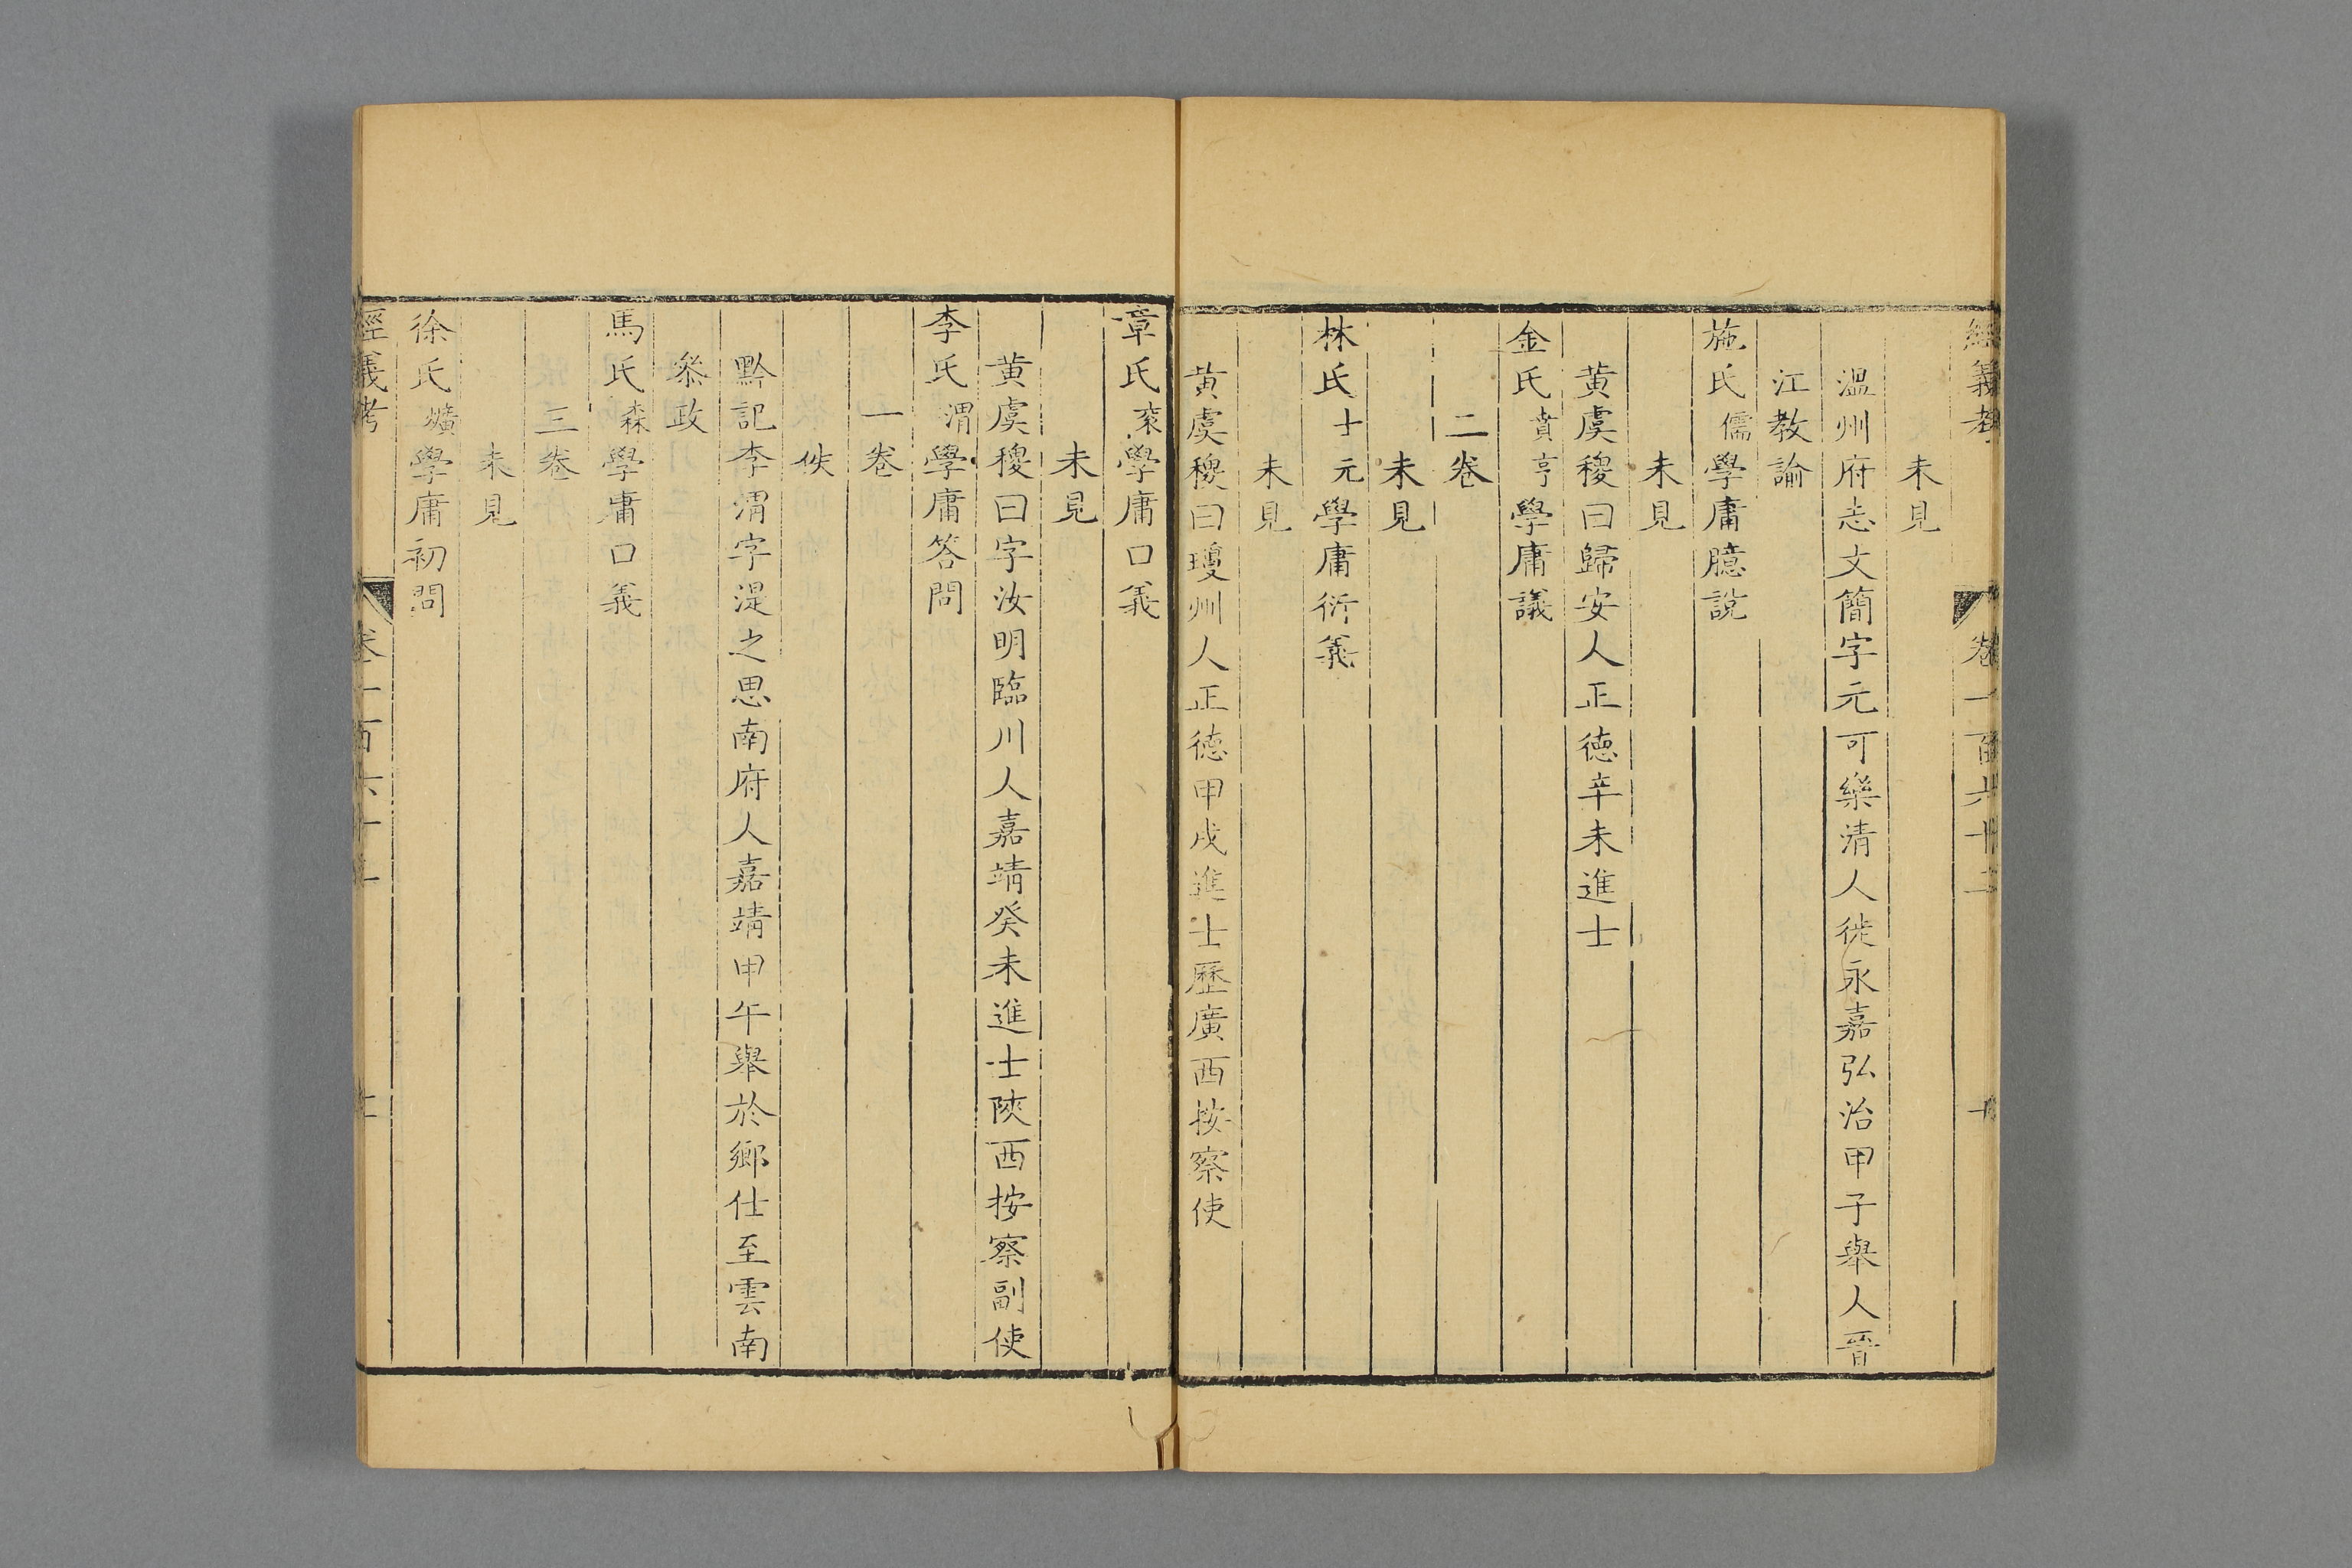 經義考 卷一百六十二 十
未見
溫州府志文簡字元可樂清人徙永嘉弘治甲子舉人晉
江教諭
施氏儒學庸臆說
未見
黃虞稷曰歸安人正德辛未進士
金氏賁亨學庸議
二卷
未見
林氏士元學庸衍義
未見
黃虞稷曰瓊州人正德甲戌進士歷廣西按察使
章氏袞學庸口義
未見
黃虞稷曰字汝明臨川人嘉靖癸未進士陝西按察副使
李氏渭學庸答問
一卷
佚
黔記李渭字湜之思南府人嘉靖甲午舉於鄉仕至雲南
叅政
馬氏森學庸口義
三卷
未見
徐氏爌學庸初問
經義考 卷一百六十二